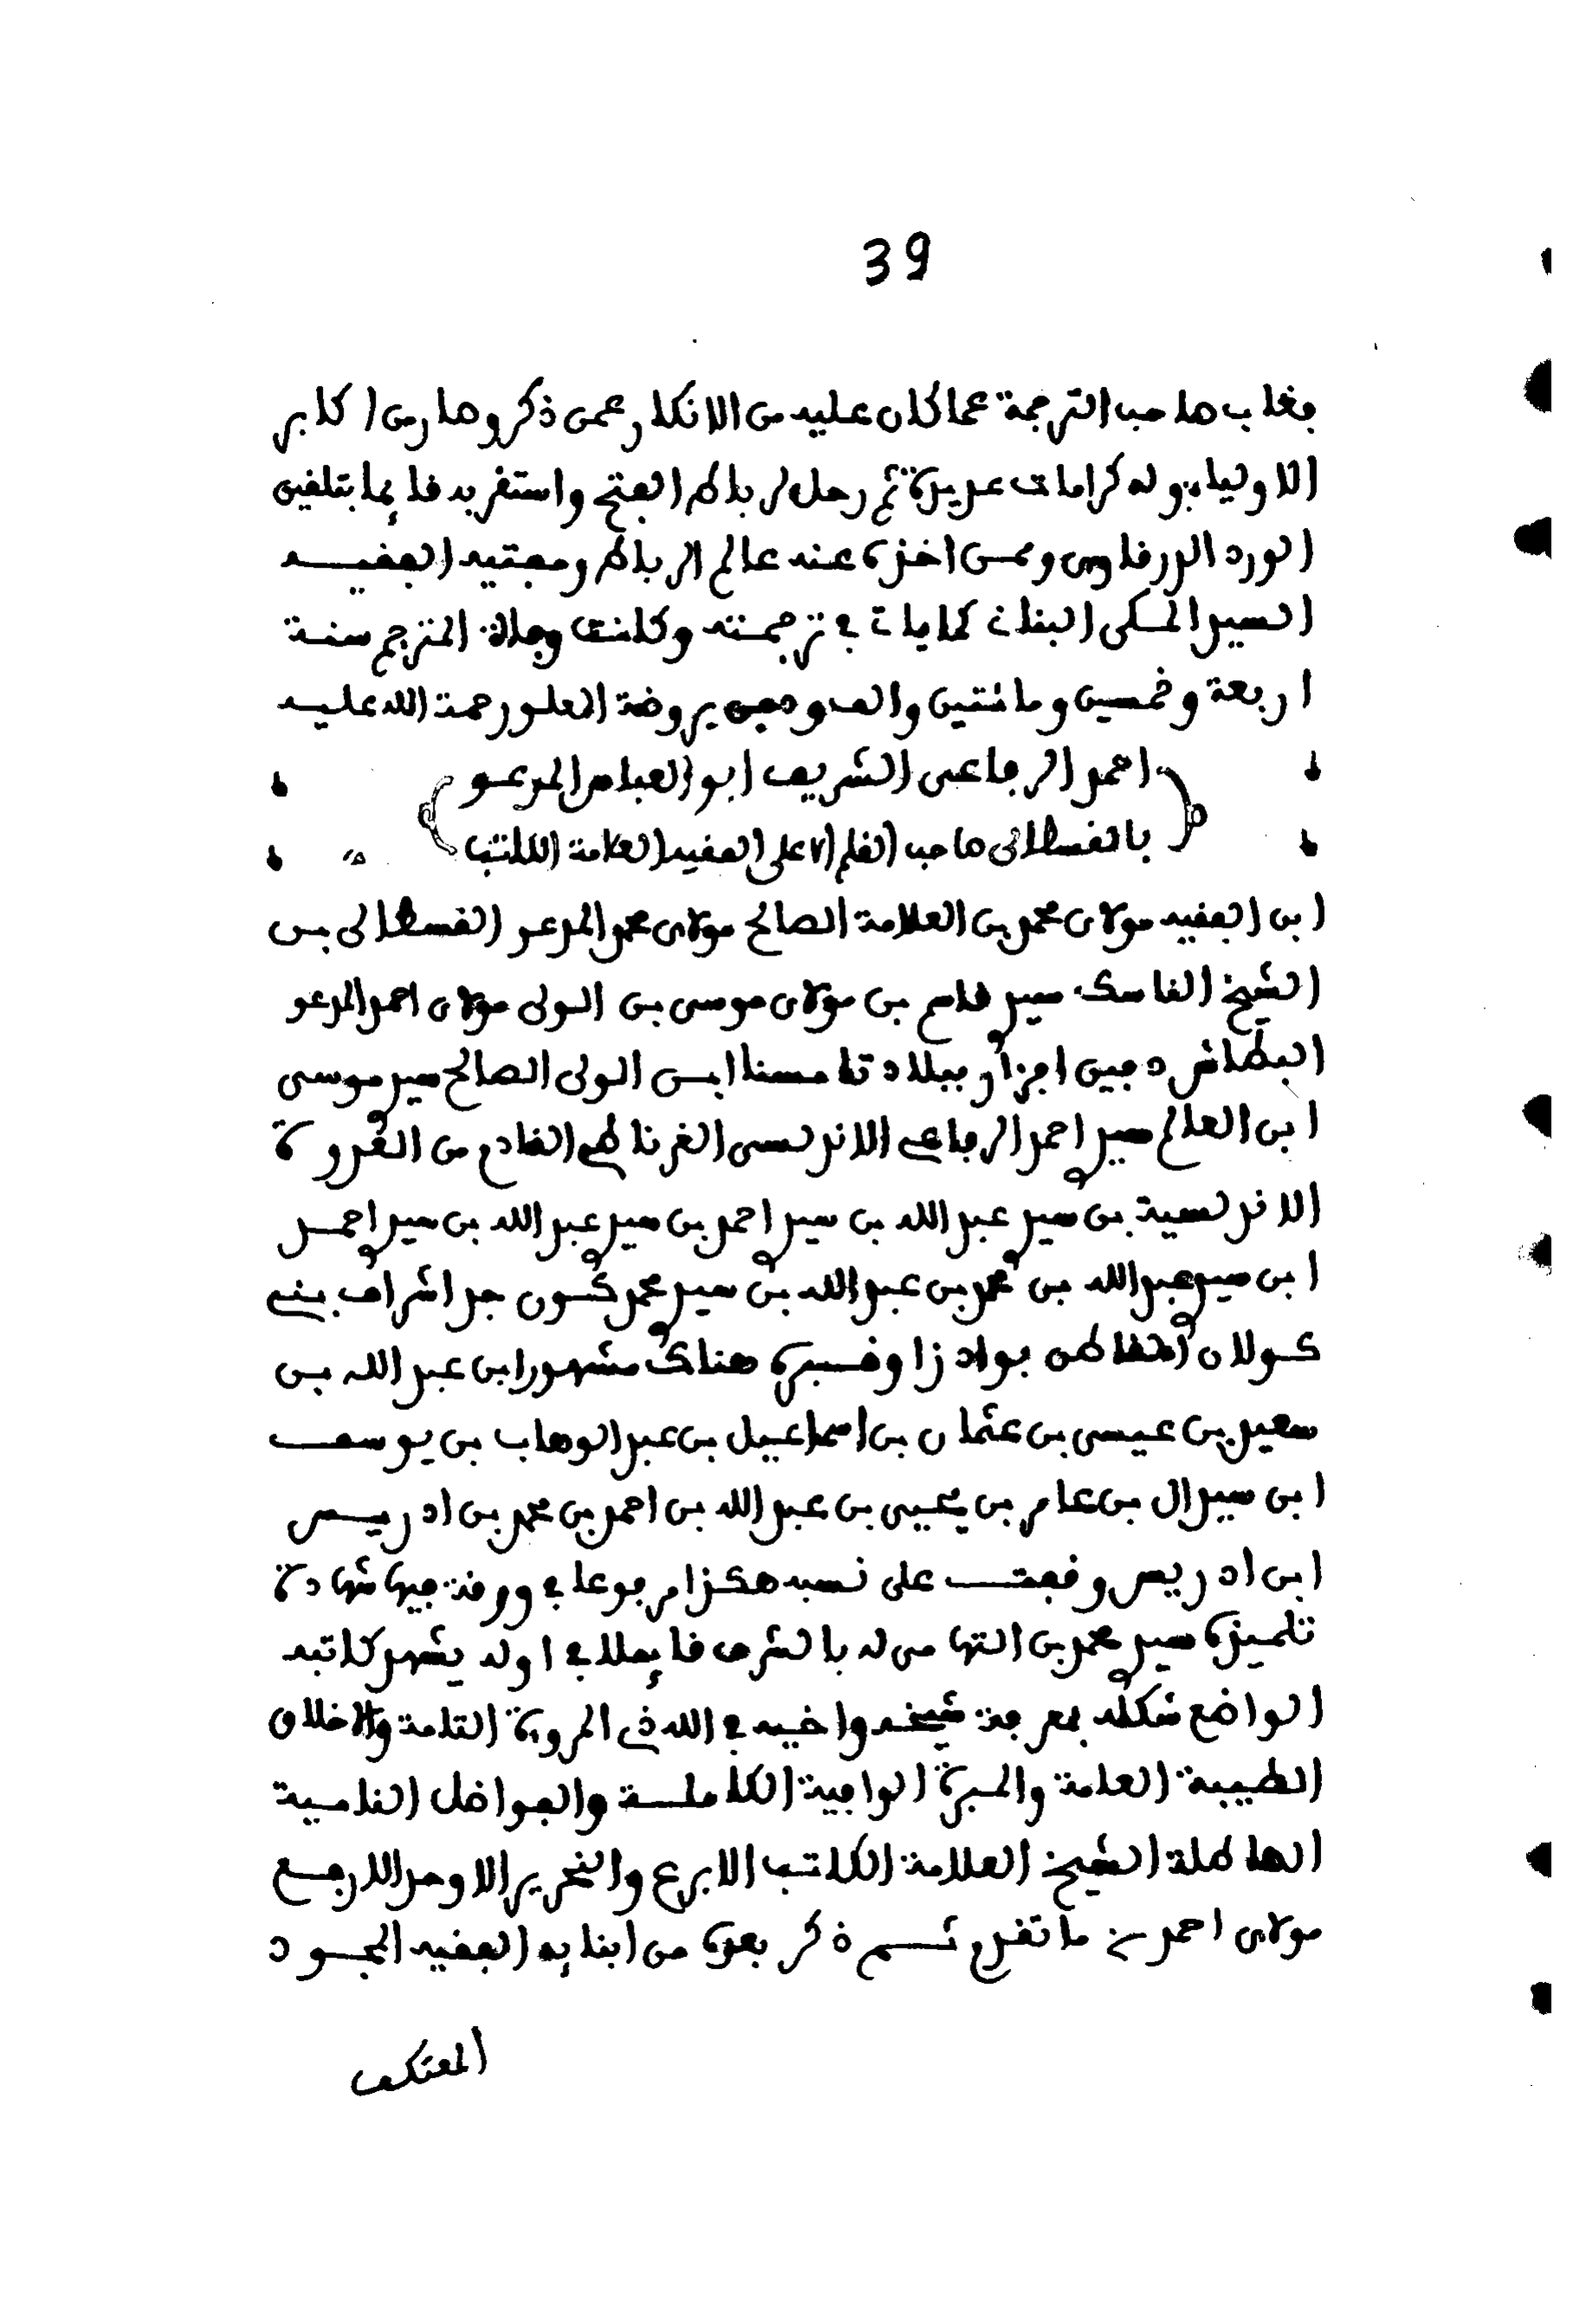 39
فغاب صاحب الترجمة عما كان عليه من الانكار عمن ذكر وصار من اكابر
الاولياء وله كرامات عديدة ثم رحل لرباط الفتح واستقر به قايما بتلقين
الورد الدرقاوي وممن اخذه عنه عالم الرباط ومفتيه الفقيه
السيد المكي البناني كما ياتي في ترجمته وكانت وفاة المترجم سنة
اربعة وخمسين ومائتين والف ودفن بروضة العلو رحمة الله عليه
احمد الرفاعي الشريف ابو العباس المدعو
بالقسطالي صاحب القلم الاعلى الفقيه العلامة الكاتب
ابن الفقيه مولاي محمد بن العلامة الصالح مولاي محمد المدعو القسطالي بن
الشيخ الناسك سيدي قاسم بن مولاي موسى بن الولي مولاي احمد المدعو
البطاش دفين افزار ببلاد تامسنا ابن الولي الصالح سيدي موسى
ابن العالم سيدي احمد الرفاعي الاندلسي الغرناطي القادم من العدوة
الاندلسية بن سيدي عبد الله بن سيدي احمد بن سيدي عبد الله بن سيدي احمد
ابن سيدي عبد الله بن محمد بن عبد الله بن سيدي محمد كنون جد اشراف بني
كولان القاطن بواد زا وقبره هناك مشهور ابن عبد الله بن
سعيد بن عيسى بن عثمان بن اسماعيل بن عبد الوهاب بن يوسف
ابن سيدال بن عامر بن يحيى بن عبد الله بن احمد بن محمد بن ادريس
ابن ادريس وقفت على نسبه هكذا مرفوعا في ورقة فيها شهادة
تلميذه سيدي محمد بن التهامي له بالشرف قايلا في اوله يشهد كاتبه
الواضع شكله بمعرفة شيخه واخيه في الله ذي المروءة التامة والاخلاق
الطيبة العامة والمبرة الوافية الكاملة والفواضل النامية
الهاطلة الشيخ العلامة الكاتب الابرع والنحرير الاوحد الارفع
مولاي احمد بن ما تقدم ثم ذكر بعده من ابنايه الفقيه المجود
المعتكف